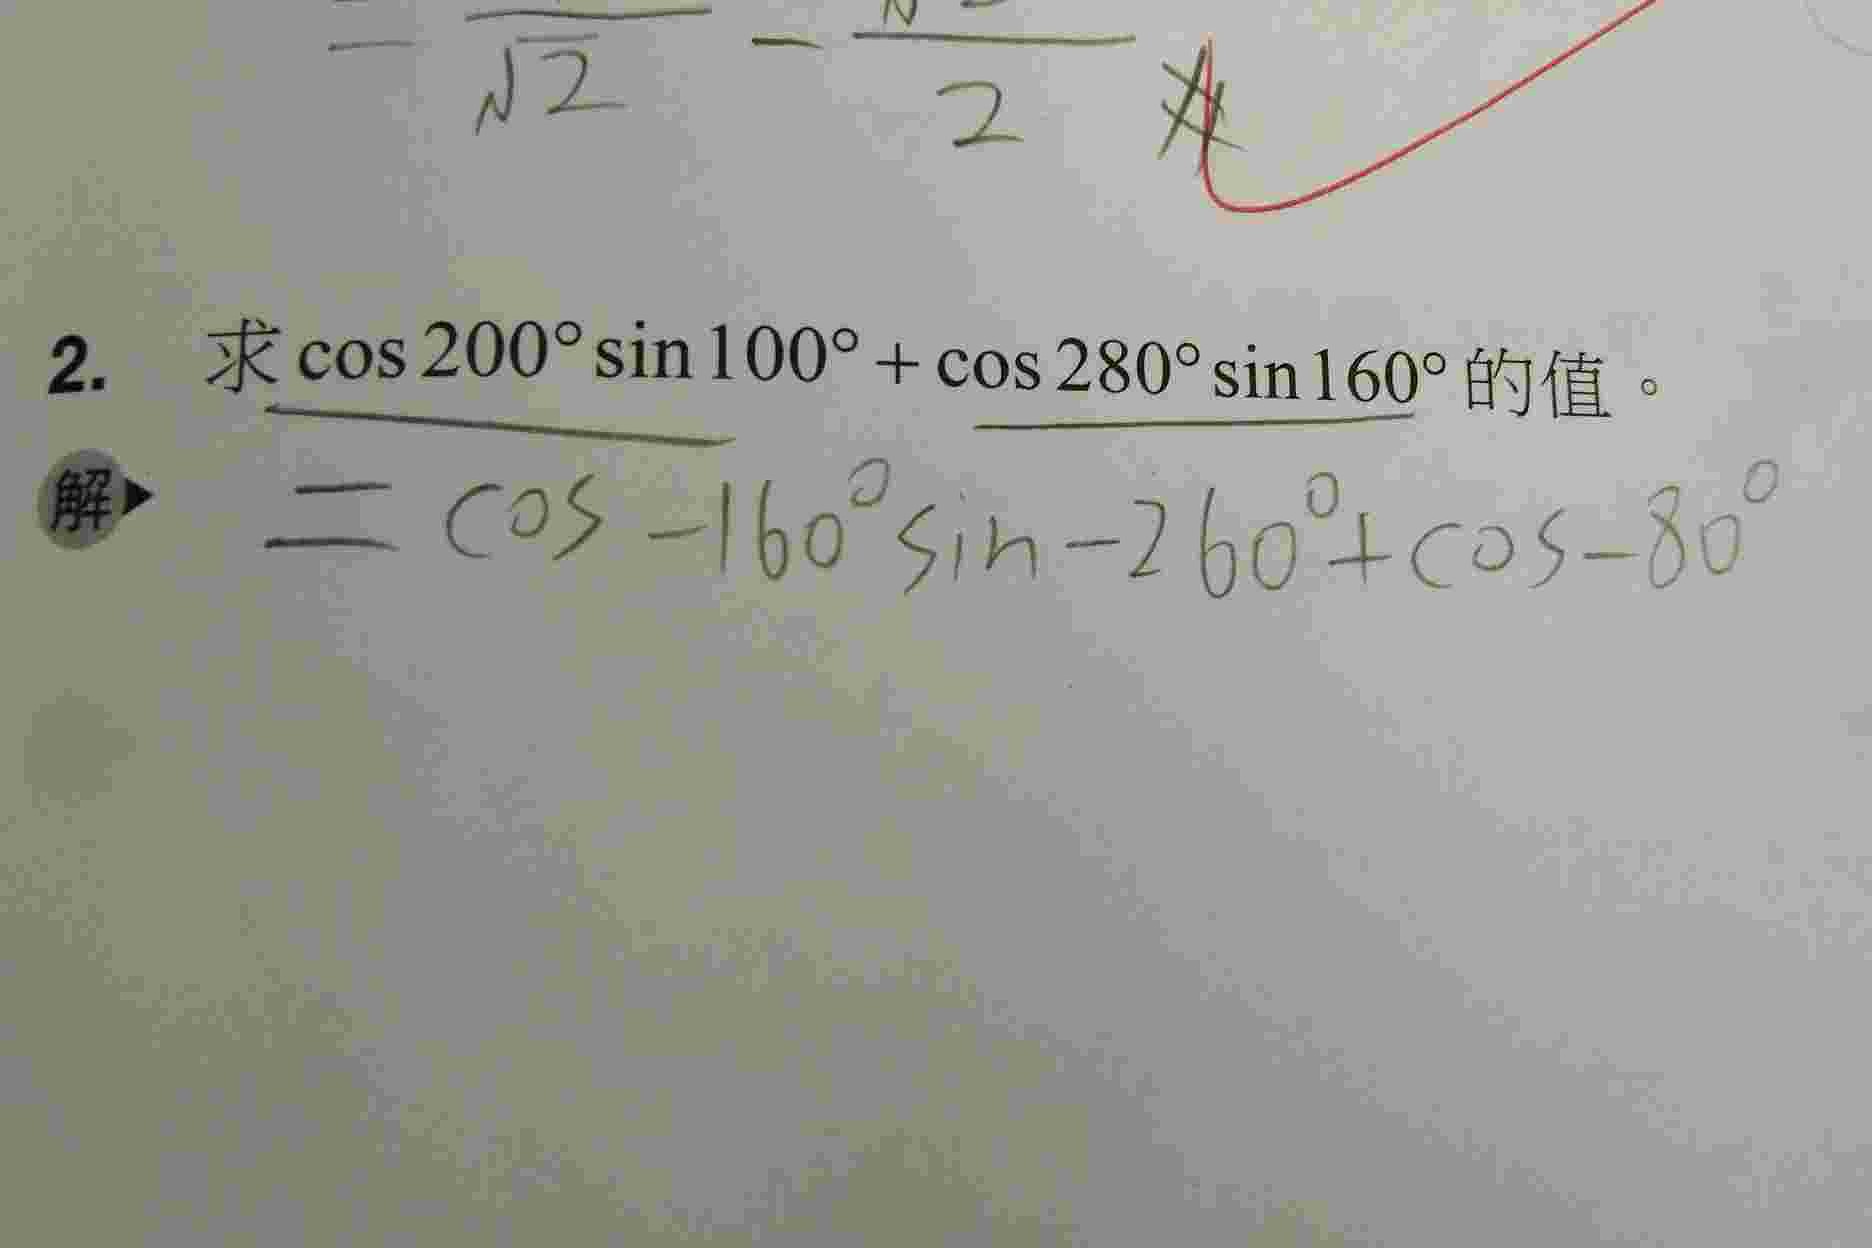 = — √2 — 2
2. 求 cos 200° sin 100° + cos 280° sin 160° 的值。
解 = cos -160° sin -260° + cos -80°